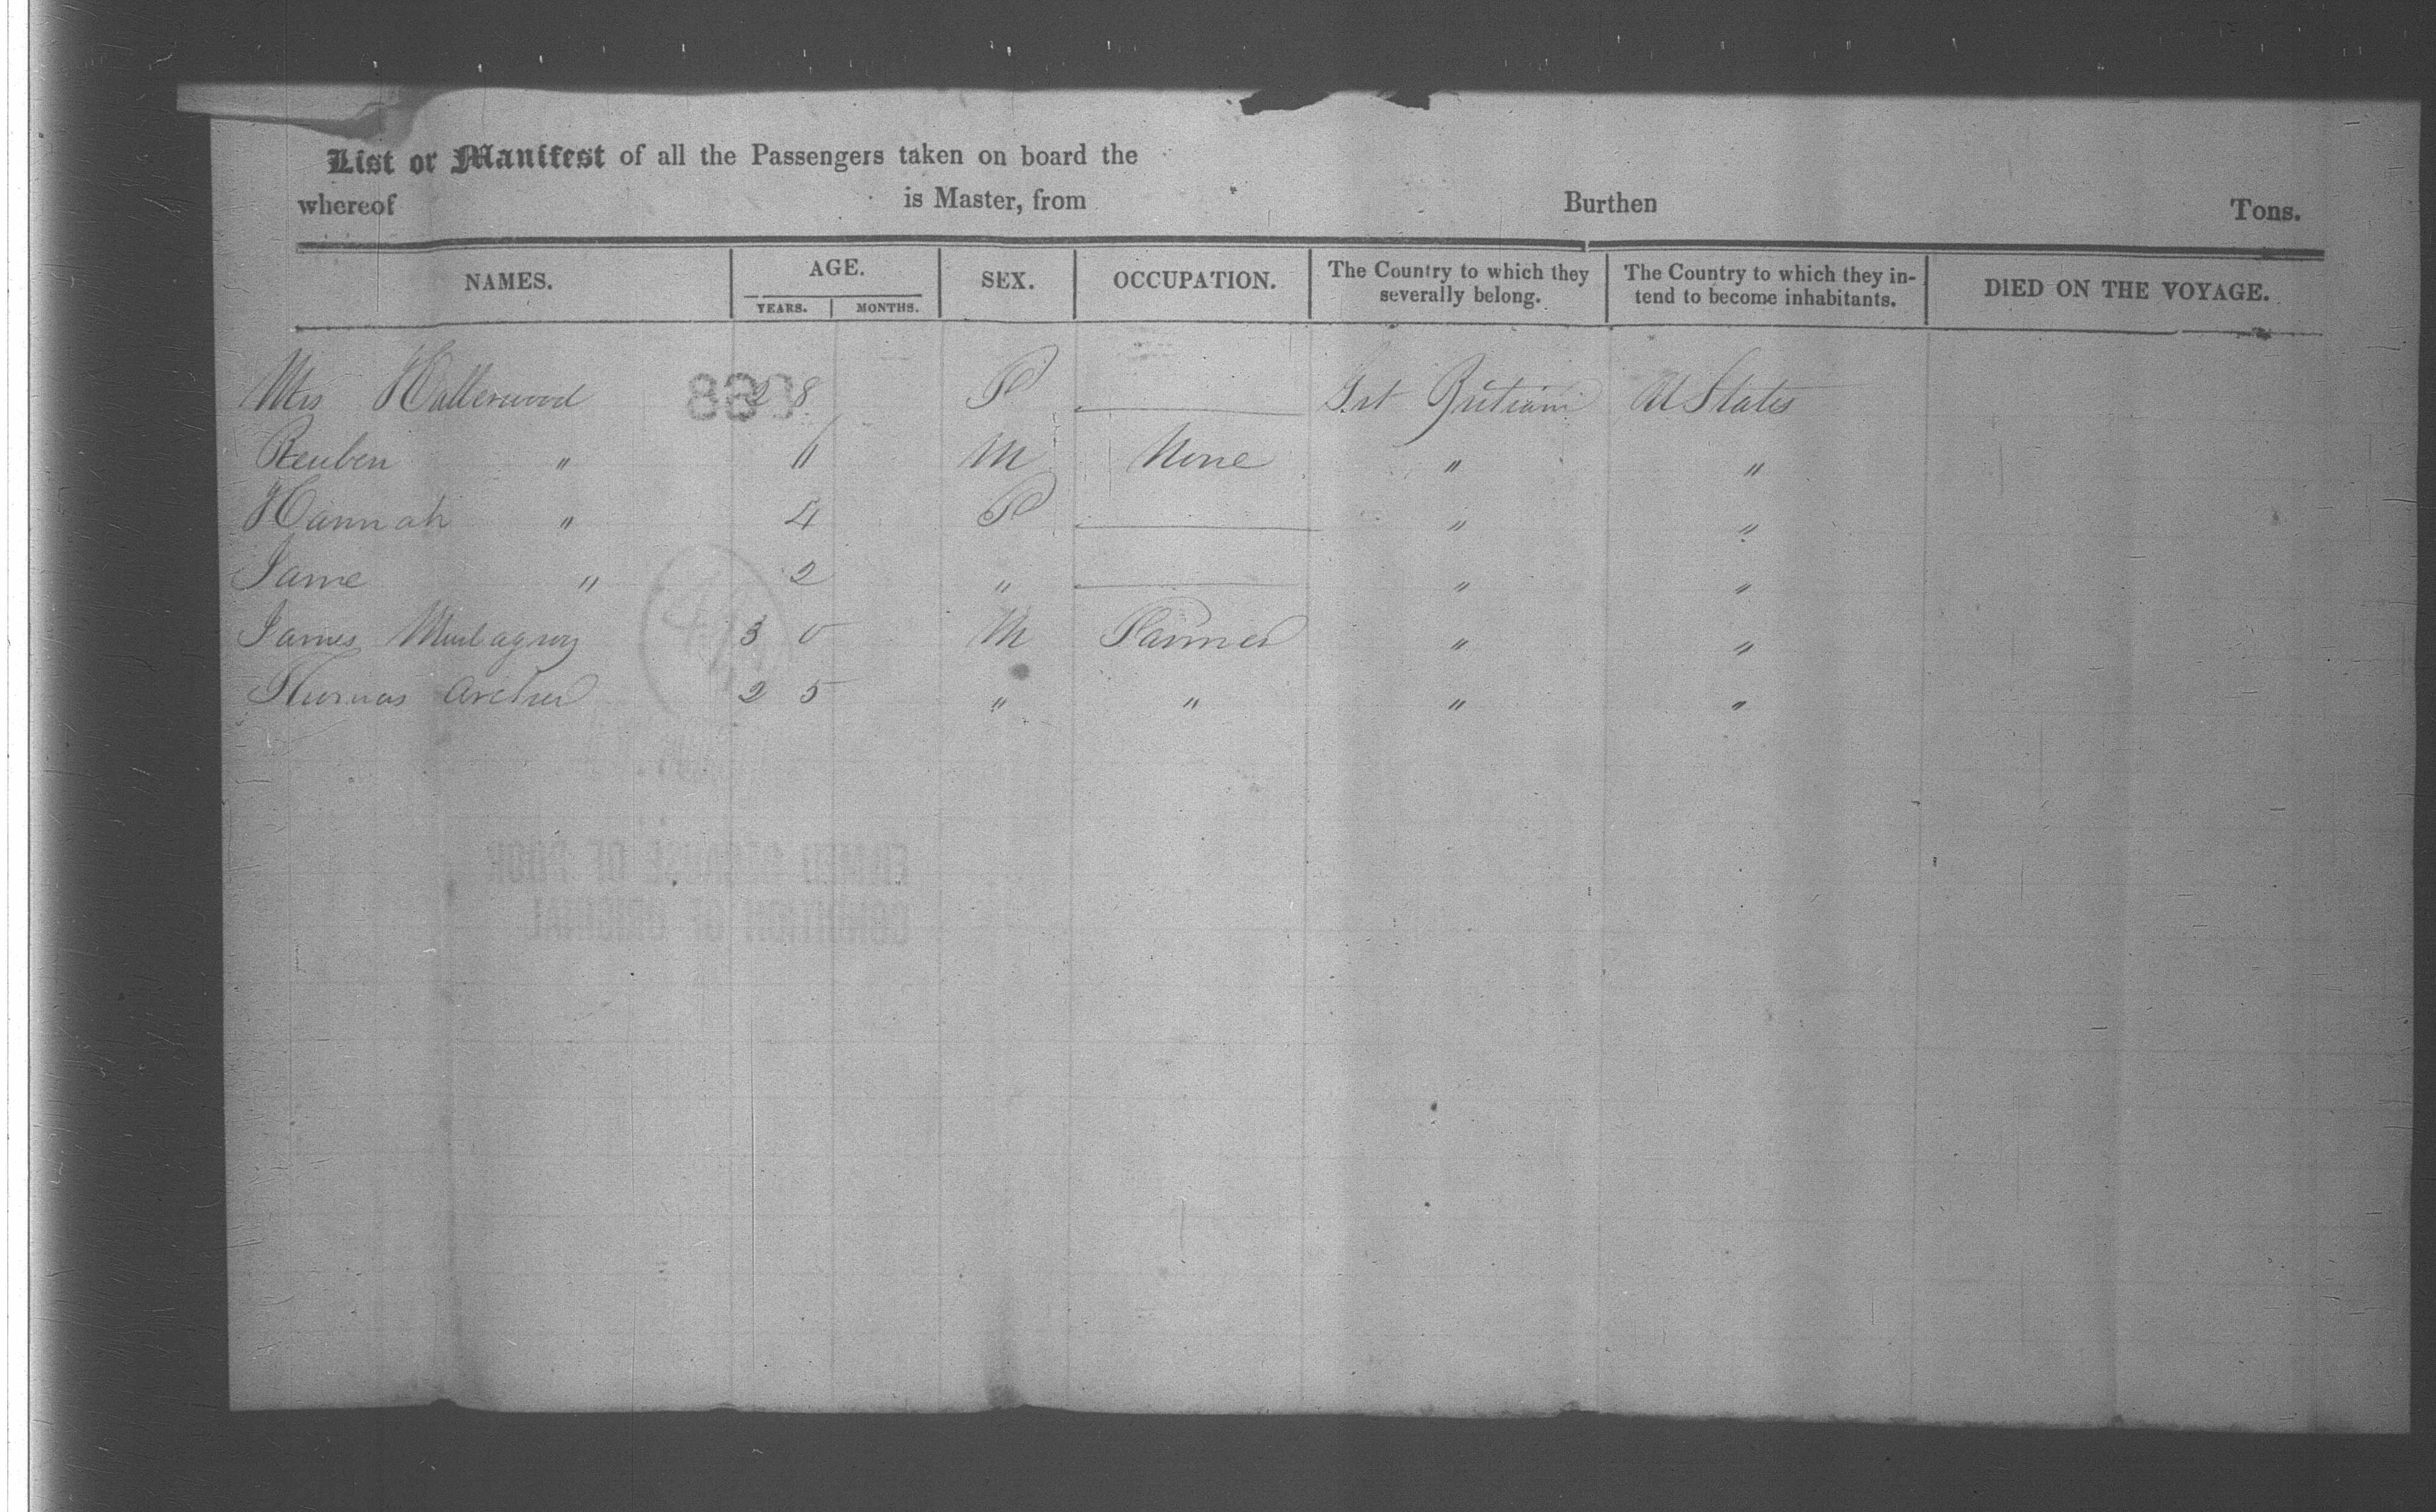 List or Manifest of all the Passengers taken on board the
whereof is Master, from Burthen Tons.
NAMES. AGE. SEX. OCCUPATION. The Country to which they severally belong. The Country to which they in-tend to become inhabitants. DIED ON THE VOYAGE.
YEARS. MONTHS.
Mrs Hallerwood 28 F — Grt Britiani U States
Reuben " 11 M None " "
Hannah " 4 F — " "
Jame " 2 " — " "
James 30 M Farmer " "
Thomas Archer 25 " " " "
CONDITION OF ORIGINAL